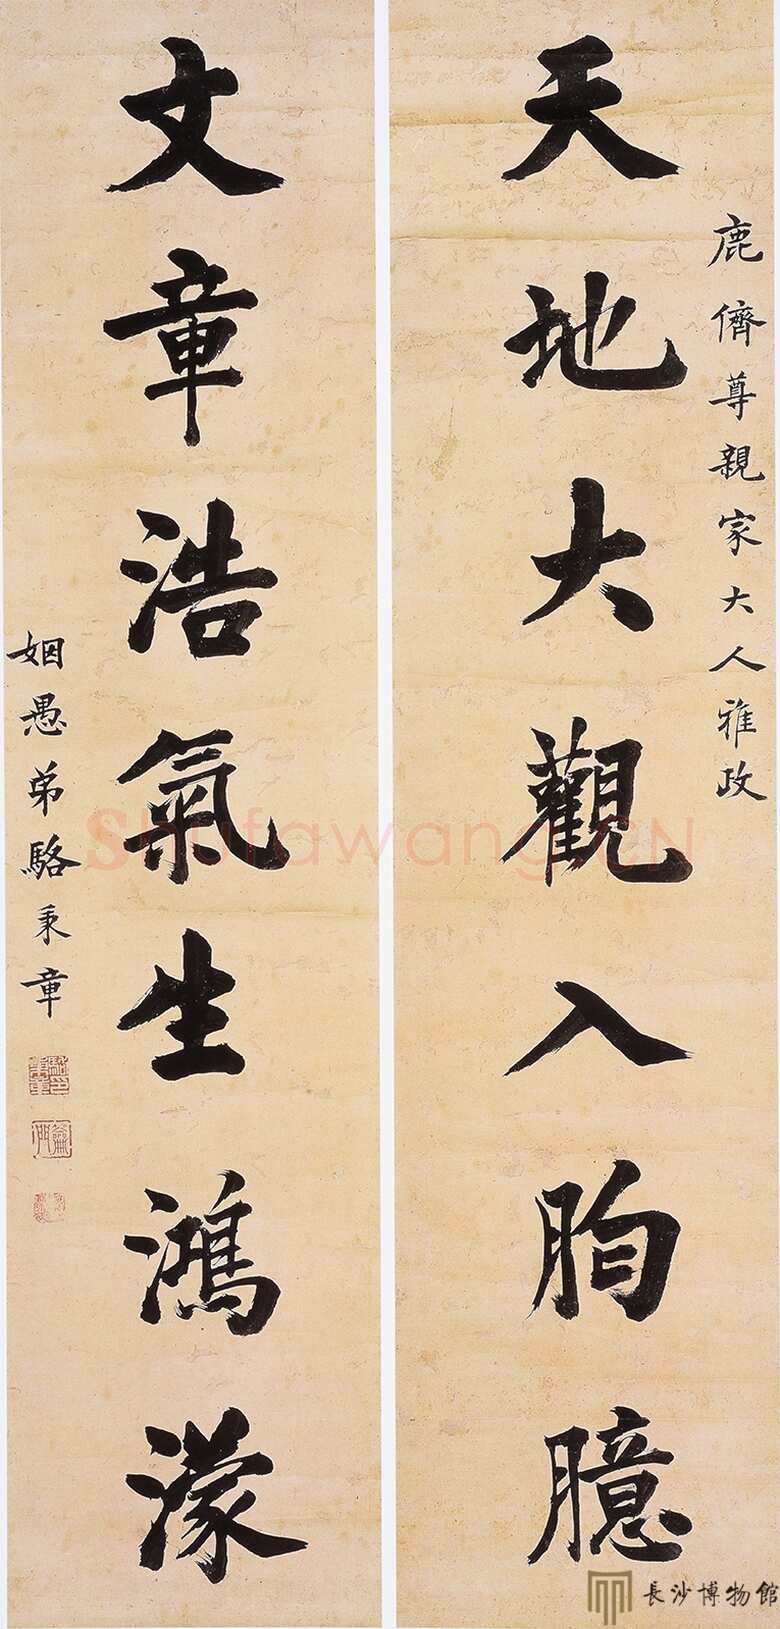 鹿儕尊親家大人雅政
天地大觀入胷臆
文章浩氣生鴻濛
姻愚弟駱秉章
駱印秉章
Shufawang.CN
長沙博物館